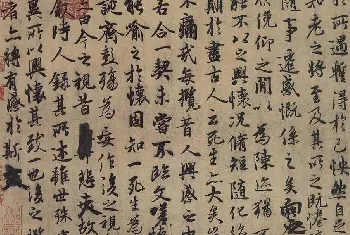 於所遇蹔得於己怏然自
知老之將至及其所之既惓
隨事遷感慨係之矣向之
俛仰之閒以為陳迹猶
能不以之興懷況脩短隨化
期於盡古人云死生亦大矣
不痛哉每攬昔人興感之
若合一契未嘗不臨文嗟
能喻之於懷固知一死生為
誕齊彭殤為妄作後之視
由今之視昔悲夫故
時人錄其所述雖世殊
異所以興懷其致一也後之
者亦將有感於斯文